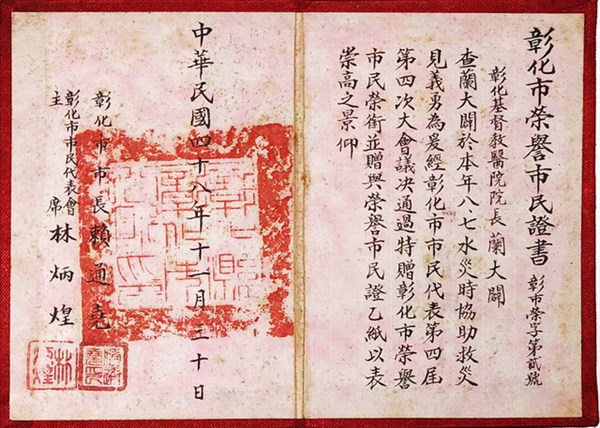 彰化市榮譽市民證書 彰市榮字第貳號
彰化基督教醫院院長蘭大闢
查蘭大闢於本年八、七水災時協助救災
見義勇為爰經彰化市市民代表第四屆
第四次大會議决通過特贈彰化市榮譽
市民榮銜並贈與榮譽市民證乙紙以表
崇高之景仰
中華民國四十八年十一月三十日
彰化市市長賴通堯
彰化市市民代表會主席林炳煌